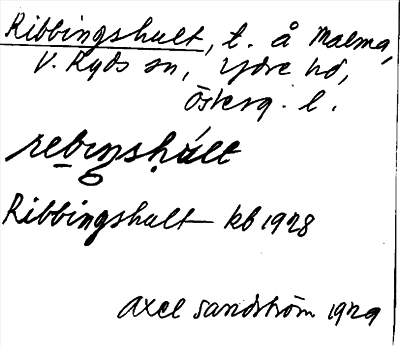 Ribbingshult, t. å Malma,
V. Ryds sn, Ydre hd,
Österg. l.
rebiŋshúlt
Ribbingshult kb 1928
Axel Sandström 1929